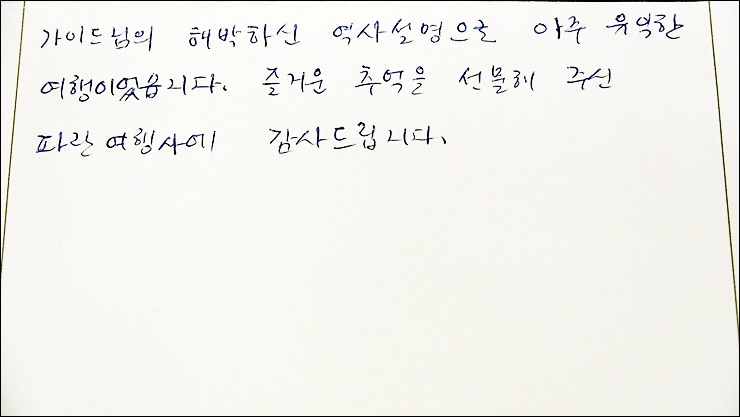 가이드님의 해박하신 역사설명으로 아주 유익한
여행이었읍니다. 즐거운 추억을 선물해 주신
파란여행사에 감사드립니다.